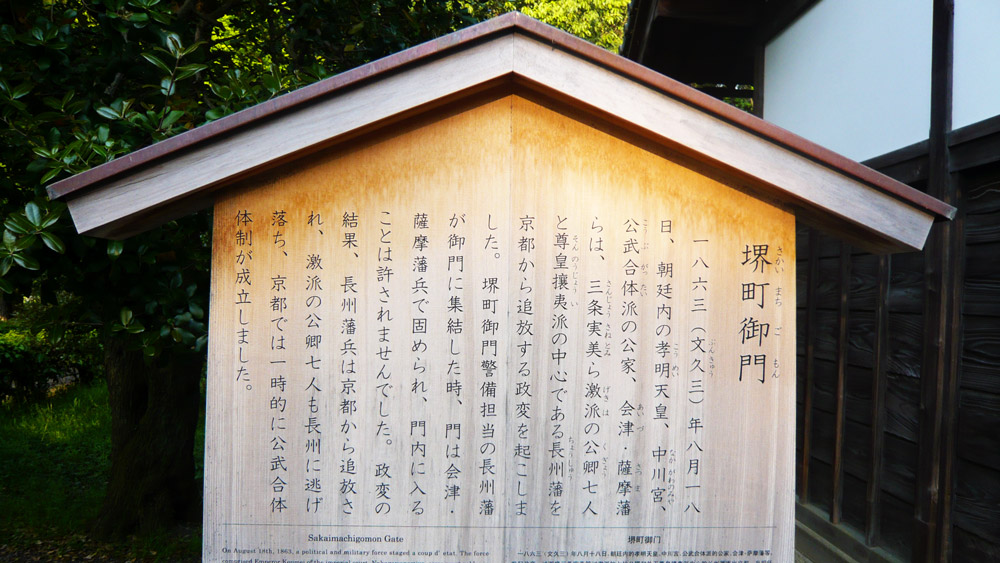 堺町御門
さかい まち ご もん
一八六三（文久三）年八月一八
ぶんきゅう
日、朝廷内の孝明天皇、中川宮、
こうめい なかがわのみや
公武合体派の公家、会津・薩摩藩
こうぶ がったい あいづ さつま
らは、三条実美ら激派の公卿七人
さんじょう さねとみ げきは くぎょう
と尊皇攘夷派の中心である長州藩を
そんのうじょうい ちょうしゅう
京都から追放する政変を起こしま
した。堺町御門警備担当の長州藩
が御門に集結した時、門は会津・
薩摩藩兵で固められ、門内に入る
ことは許されませんでした。政変の
結果、長州藩兵は京都から追放さ
れ、激派の公卿七人も長州に逃げ
落ち、京都では一時的に公武合体
体制が成立しました。
Sakaimachigomon Gate
On August 18th, 1863, a political and military force staged a coup d' etat. The force
堺町御门
一八六三（文久三）年八月十八日，朝廷内的孝明天皇，中川宫，公武合体派的公家，会津·萨摩藩等，